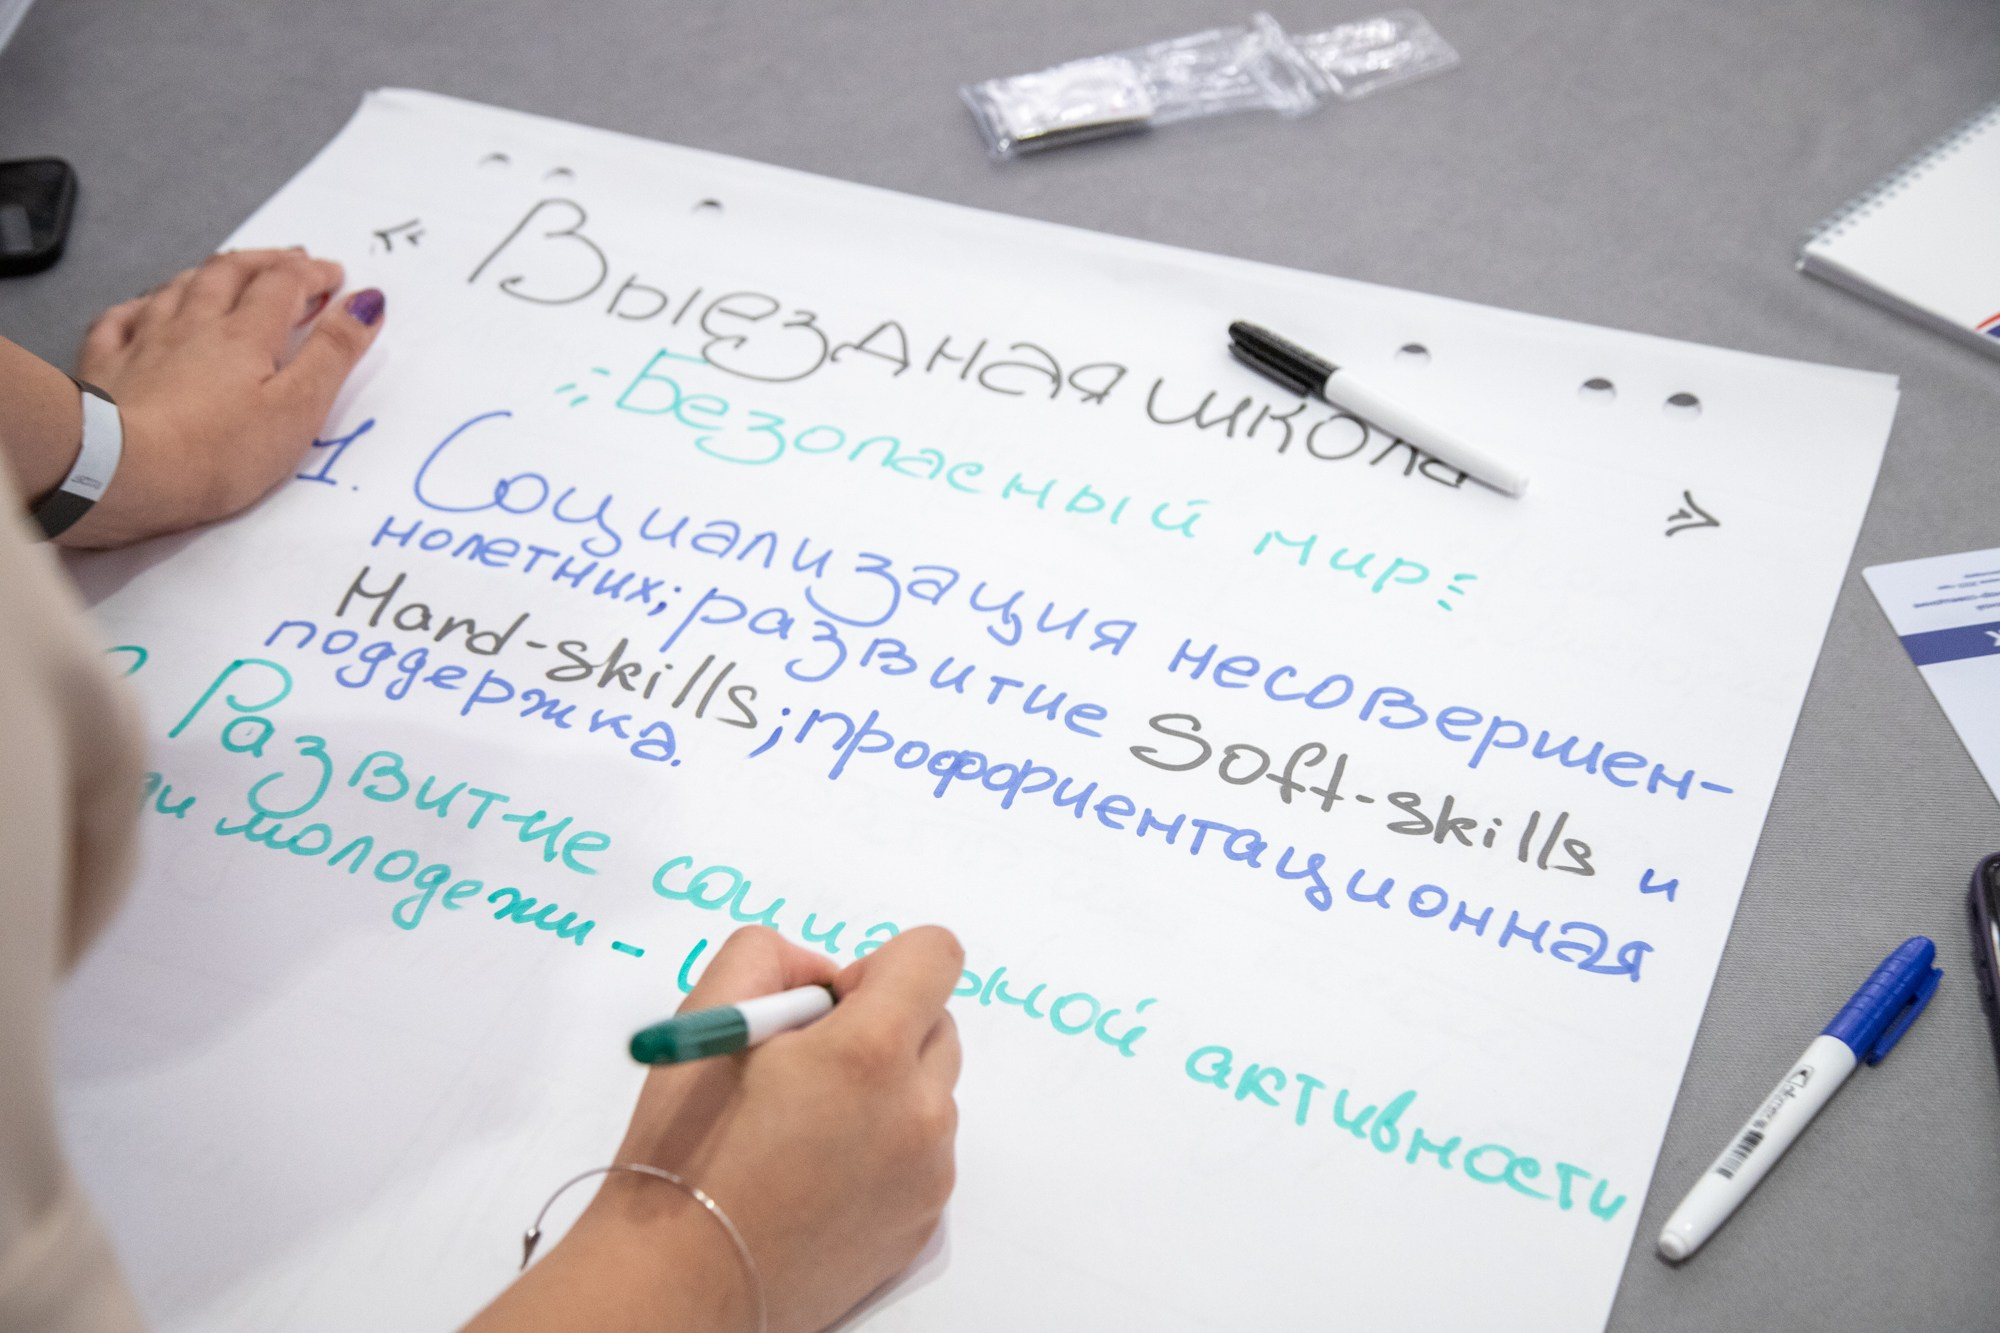 « Выездная школа »
"Безопасный мир"
1. Социализация несовершен-
нолетних; развитие Soft-skills и
Hard-skills; профориентационная
поддержка.
Развитие социальной активности
молодежи -